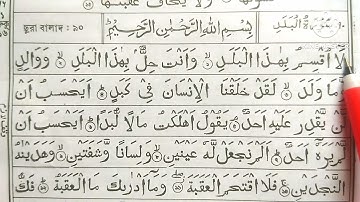 وَلَا يَخَافُ عُقْبٰهَا
الْبَلَدِ بِسْمِ اللهِ الرَّحْمٰنِ الرَّحِيْمِ ছুরা বালাদ : ৯০
لَا اُقْسِمُ بِهٰذَا الْبَلَدِ ۙ وَاَنْتَ حِلٌّۢ بِهٰذَا الْبَلَدِ ۙ وَوَالِدٍ
وَّمَا وَلَدَ ۙ لَقَدْ خَلَقْنَا الْاِنْسَانَ فِيْ كَبَدٍ ؕ اَيَحْسَبُ اَنْ
لَّنْ يَّقْدِرَ عَلَيْهِ اَحَدٌ ۘ يَقُوْلُ اَهْلَكْتُ مَالًا لُّبَدًا ؕ اَيَحْسَبُ اَنْ
لَّمْ يَرَهٗۤ اَحَدٌ ؕ اَلَمْ نَجْعَلْ لَّهٗ عَيْنَيْنِ ۙ وَلِسَانًا وَّشَفَتَيْنِ ۙ وَهَدَيْنٰهُ
النَّجْدَيْنِ ۚ فَلَا اقْتَحَمَ الْعَقَبَةَ ۖ وَمَاۤ اَدْرٰىكَ مَا الْعَقَبَةُ ؕ فَكُّ